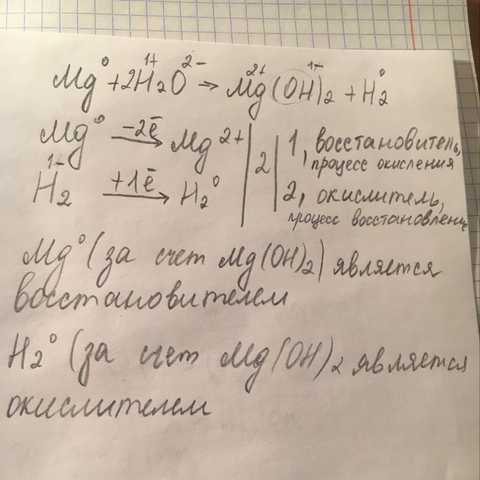 Mg⁰ + 2H₂¹⁺O²⁻ → Mg²⁺(OH)₂¹⁻ + H₂⁰
Mg⁰ –2ē → Mg²⁺ | 2 | 1, восстановитель, процесс окисления
H₂¹⁻ +1ē → H₂⁰ | | 2, окислитель, процесс восстановление
Mg⁰ (за счет Mg(OH)₂) является
восстановителем
H₂⁰ (за счет Mg(OH)₂ является
окислителем